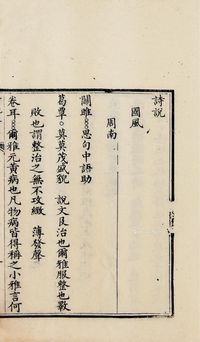 詩説
國風
周南
關雎○○思句中語助
葛覃○莫莫茂盛貌　説文艮治也爾雅服整也斁
敗也謂整治之無不攻緻　薄發聲
卷耳○○爾雅元黃病也凡物病皆得稱之小雅言何